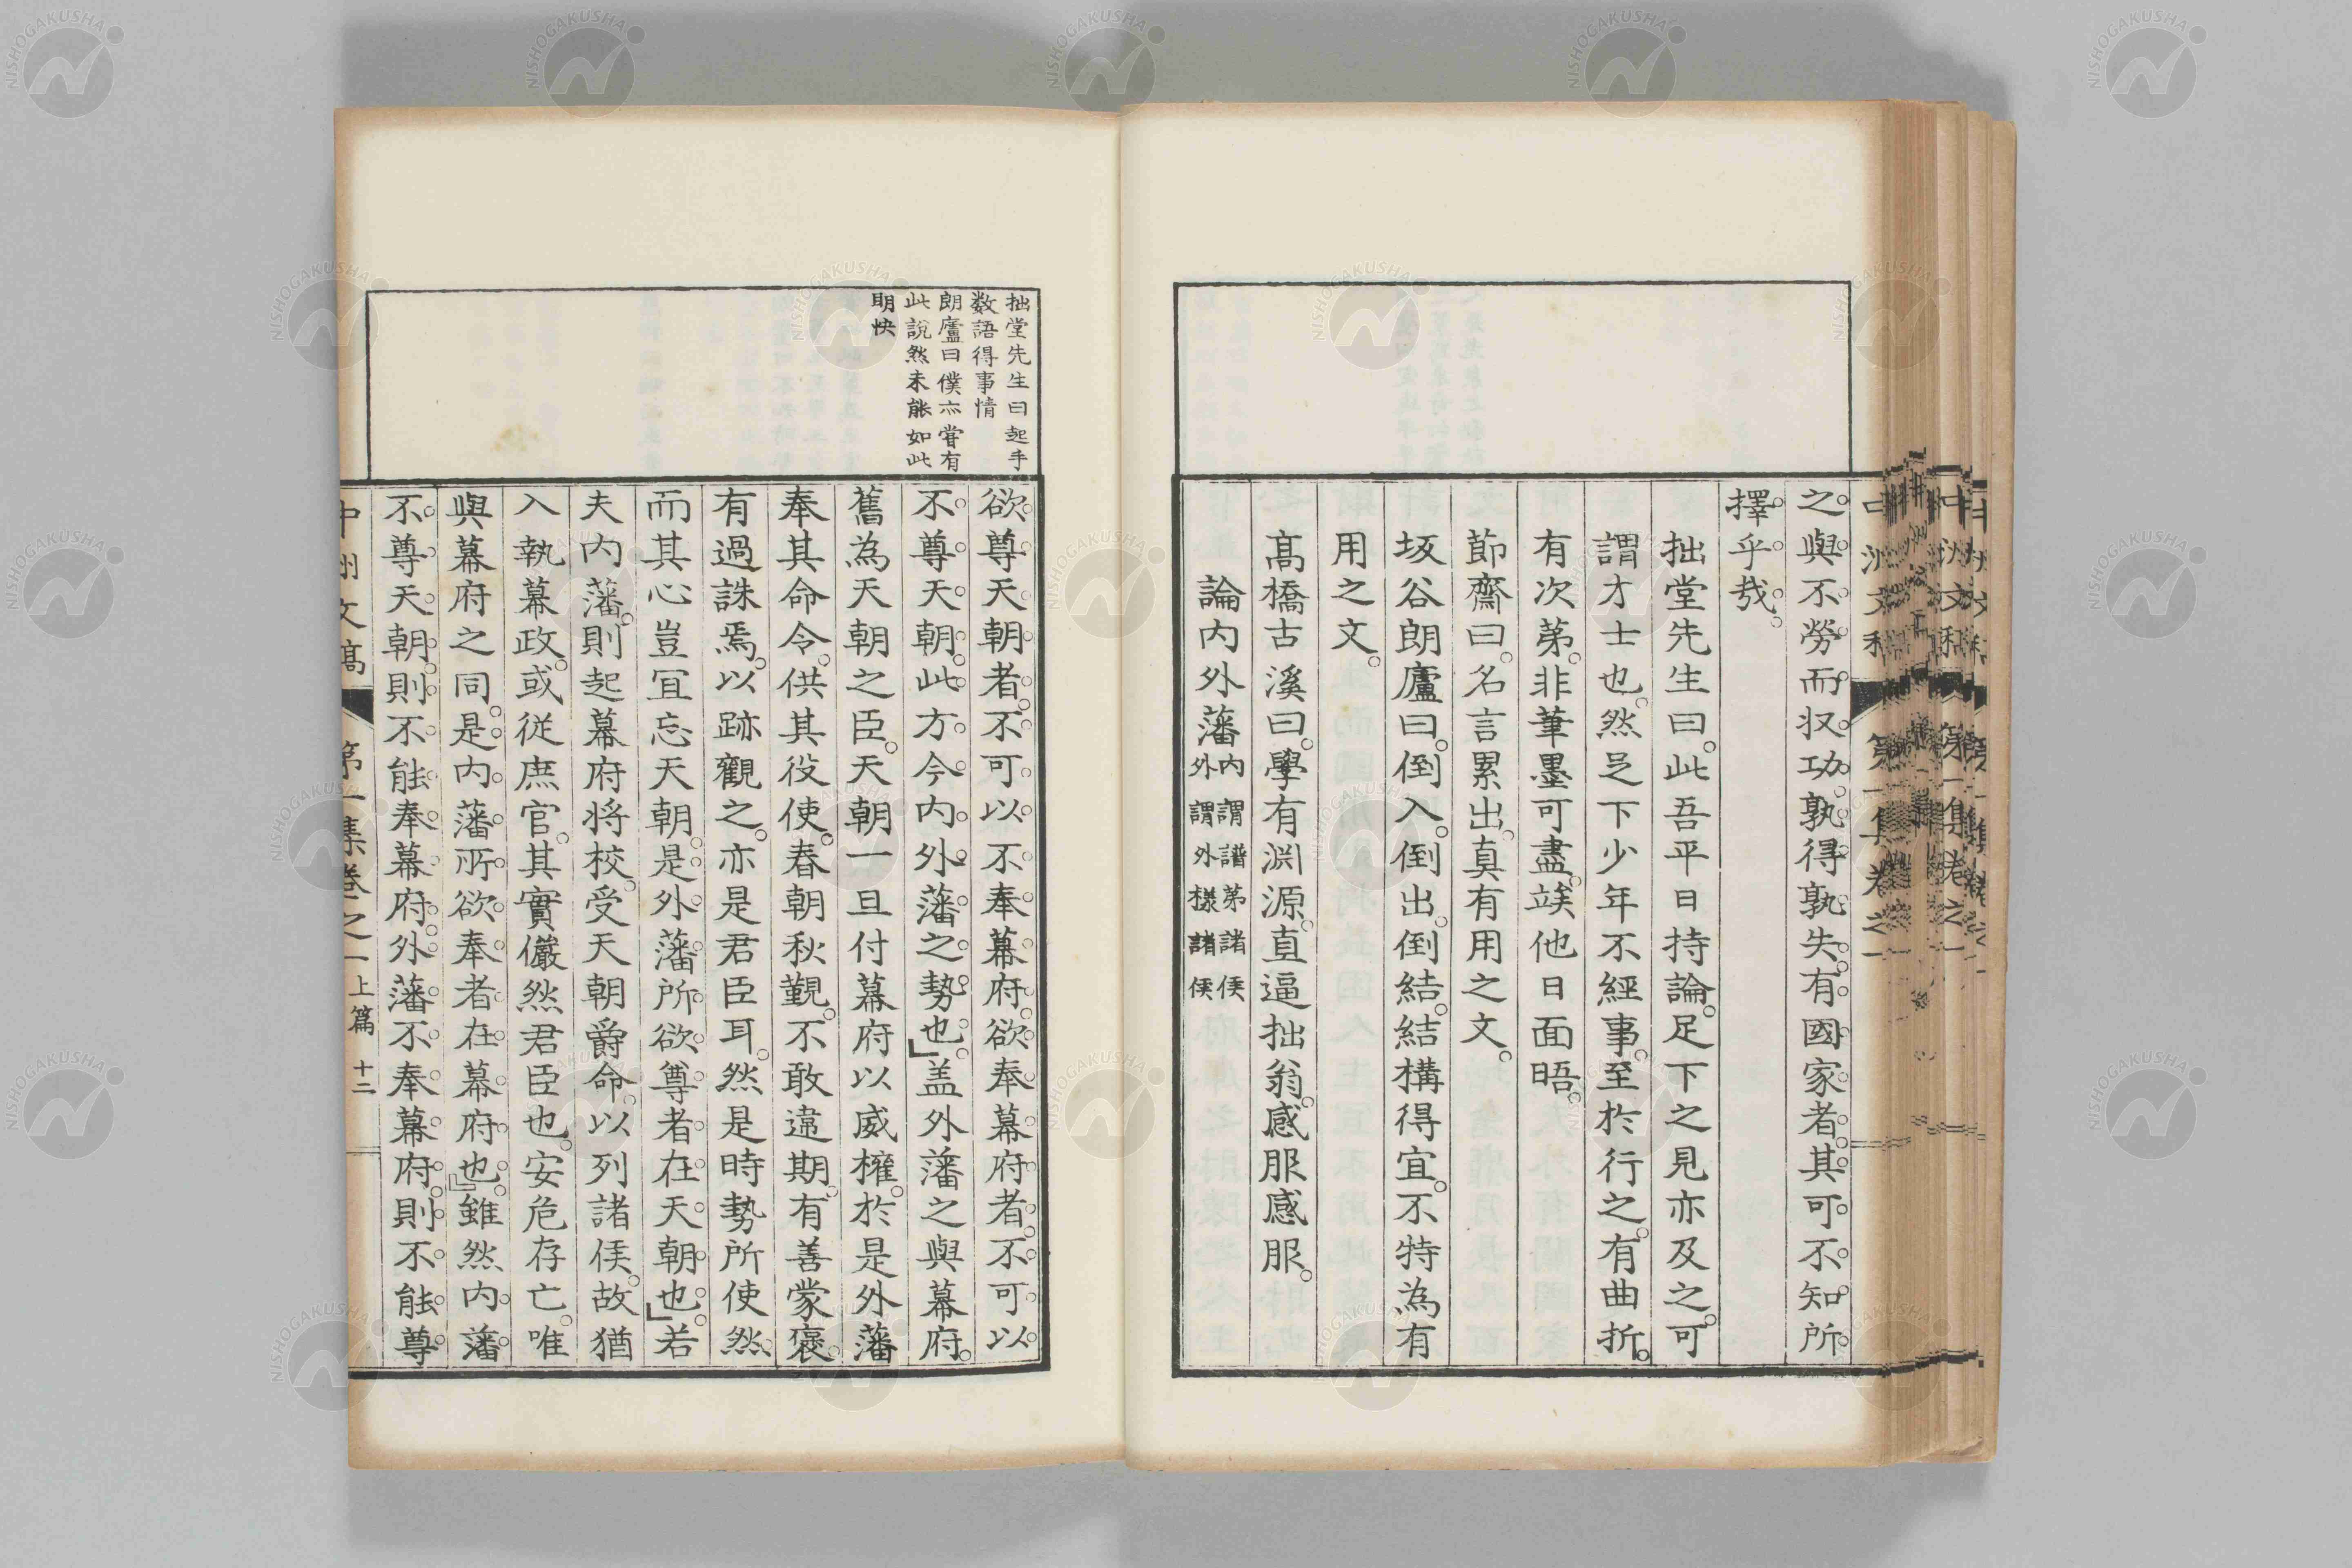 之與不勞而収功。孰得孰失。有國家者。其可不知所
擇乎哉。
拙堂先生曰。此吾平日持論。足下之見亦及之。可
謂才士也。然足下少年不經事。至於行之。有曲折。
有次第。非筆墨可盡。竢他日面晤。
節齋曰。名言累出。真有用之文。
坂谷朗廬曰。倒入。倒出。倒結。結構得宜。不特為有
用之文。
髙橋古溪曰。學有淵源。直逼拙翁。感服感服。
論内外藩内謂譜第諸侯
外謂外樣諸侯
拙堂先生曰起手
数語得事情
朗廬曰僕亦甞有
此說然未能如此
明快
欲尊天朝者。不可以不奉幕府。欲奉幕府者。不可以
不尊天朝。此方今内外藩之勢也。」盖外藩之與幕府。
舊為天朝之臣。天朝一旦付幕府以威權。於是外藩
奉其命令。供其役使。春朝秋覲。不敢違期。有善蒙褒。
有過誅焉。以跡觀之。亦是君臣耳。然是時勢所使然。
而其心豈冝忘天朝。是外藩所欲尊者在天朝也。」若
夫内藩。則起幕府將校。受天朝爵命。以列諸侯。故猶
入執幕政。或從庶官。其實儼然君臣也。安危存亡。唯
與幕府之同。是内藩所欲奉者在幕府也。』雖然内藩
不尊天朝。則不能奉幕府。外藩不奉幕府。則不能尊
中洲文稿 第一集卷之一 上篇 十二
NISHOGAKUSHA